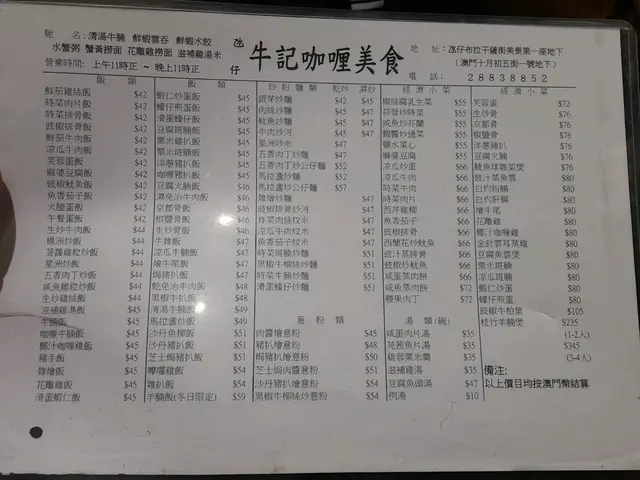 馳 名：清湯牛腩 鮮蝦雲吞 鮮蝦水餃
水蟹粥 蟹黃撈面 花雕雞撈面 滋補雞湯米
營業時間： 上午11時正 ~ 晚上11時正
氹仔 牛記咖喱美食
地 址：氹仔布拉干薩街美景第一座地下
（澳門十月初五街一號地下）
電 話：28838852
飯 類
鮮茄雞絲飯 $42
時菜肉片飯 $42
時菜排骨飯 $42
豉椒排骨飯 $42
鮮茄牛肉飯 $42
涼瓜牛肉飯 $42
芙蓉蛋飯 $42
麻婆豆腐飯 $42
豉椒魷魚飯 $42
魚香茄子飯 $42
火腿蛋飯 $42
午餐蛋飯 $42
生炒牛肉飯 $44
楊洲炒飯 $44
菠蘿雞粒炒飯 $44
星洲炒飯 $44
五香肉丁炒飯 $44
咸魚雞粒炒飯 $44
生炒雞絲飯 $44
滋補雞湯飯 $45
牛腩飯 $45
咖喱牛腩飯 $45
椰汁咖喱雞飯 $45
豬手飯 $45
雜燴飯 $45
花雕雞飯 $45
滑蛋蝦仁飯 $45
飯 類
蝦仁炒蛋飯 $45
蠔仔煎蛋飯 $45
滑蛋蠔仔飯 $45
豆腐斑腩飯 $45
粟米雞扒飯 $45
粟米斑腩飯 $45
洋葱豬扒飯 $45
咖喱豬扒飯 $45
豆腐火腩飯 $46
涼瓜火腩飯
京都骨飯 $46
椒鹽骨飯 $46
生炒骨飯 $46
牛雜飯 $47
涼瓜牛腩飯 $47
燴牛尾飯 $47
焗豬扒飯 $47
乾免治牛肉飯 $48
黑椒豬扒飯 $48
清湯牛腩飯 $49
馬拉盞炒飯 $49
沙丹魚柳飯 $51
沙丹豬扒飯 $51
芝士焗豬扒飯 $51
嘟嘟雞飯 $54
雜扒飯 $54
羊腩飯(冬日限定) $59
炒 粉 麵 類 乾炒 濕炒
銀芽炒麵 $42 $45
肉絲炒麵 $45 $47
魷魚炒麵 $45 $47
牛肉炒河 $45 $47
星洲炒米 $47
五香肉丁炒麵 $47
五香肉丁炒公仔麵 $52
馬拉盞炒麵 $52
馬拉盞炒公仔麵 $57
雜燴炒麵 $47
豉椒排骨炒河 $47
炸菜肉絲炆米 $47
魚香茄子炆米 $47
涼瓜牛腩炒麵 $51
時菜斑腩炒麵 $51
黑椒牛柳絲炒麵 $51
時菜牛腩炒麵 $51
滑蛋蠔仔炒麵 $51
意 粉 類
肉醬燴意粉 $45
豬扒燴意粉 $48
焗豬扒燴意粉 $50
芝士焗肉醬意粉 $51
沙丹魚柳意粉 $54
沙丹豬扒意粉 $54
黑椒牛柳絲炒意粉 $54
經 濟 小 菜
椒絲腐乳生菜 $55
蒜蓉炒時菜 $55
咸魚炒芥蘭 $55
蝦醬炒通菜 $55
鹽水菜心 $55
麻婆豆腐 $55
涼瓜炒蛋 $66
涼瓜牛肉 $66
時菜牛肉 $66
時菜肉片 $66
西芹雞柳 $66
魚香茄子 $66
豉椒排骨 $66
西蘭花炒魷魚 $66
豉汁蒸排骨 $66
豉椒炒魷魚 $66
咸蛋蒸肉餅 $66
咸魚蒸肉餅 $72
腰果肉丁 $72
湯 類（碗）
咸蛋肉片湯 $35
芫茜魚片湯 $35
雞蓉粟米羹 $35
滋補雞湯 $35
豆腐魚頭湯 $47
例湯 $10
經 濟 小 菜
芙蓉蛋 $72
生炒骨 $76
京都骨 $76
椒鹽骨 $76
洋葱豬扒 $76
豆腐火腩 $76
鯪魚球雜菜煲 $76
豉汁蒸魚雲 $80
白灼粉腸 $80
白灼肝腸 $80
燴牛尾 $80
花雕雞 $80
椰汁咖喱雞 $80
金針雲耳蒸雞 $80
豆腐魚雲煲 $80
粟米斑腩 $80
涼瓜斑腩 $80
蝦仁炒蛋 $80
蠔仔煎蛋 $80
豉椒牛柏葉 $105
枝竹羊腩煲 $235
(1-2人)
$345
(3-4人)
備注：
以上價目均按澳門幣結算